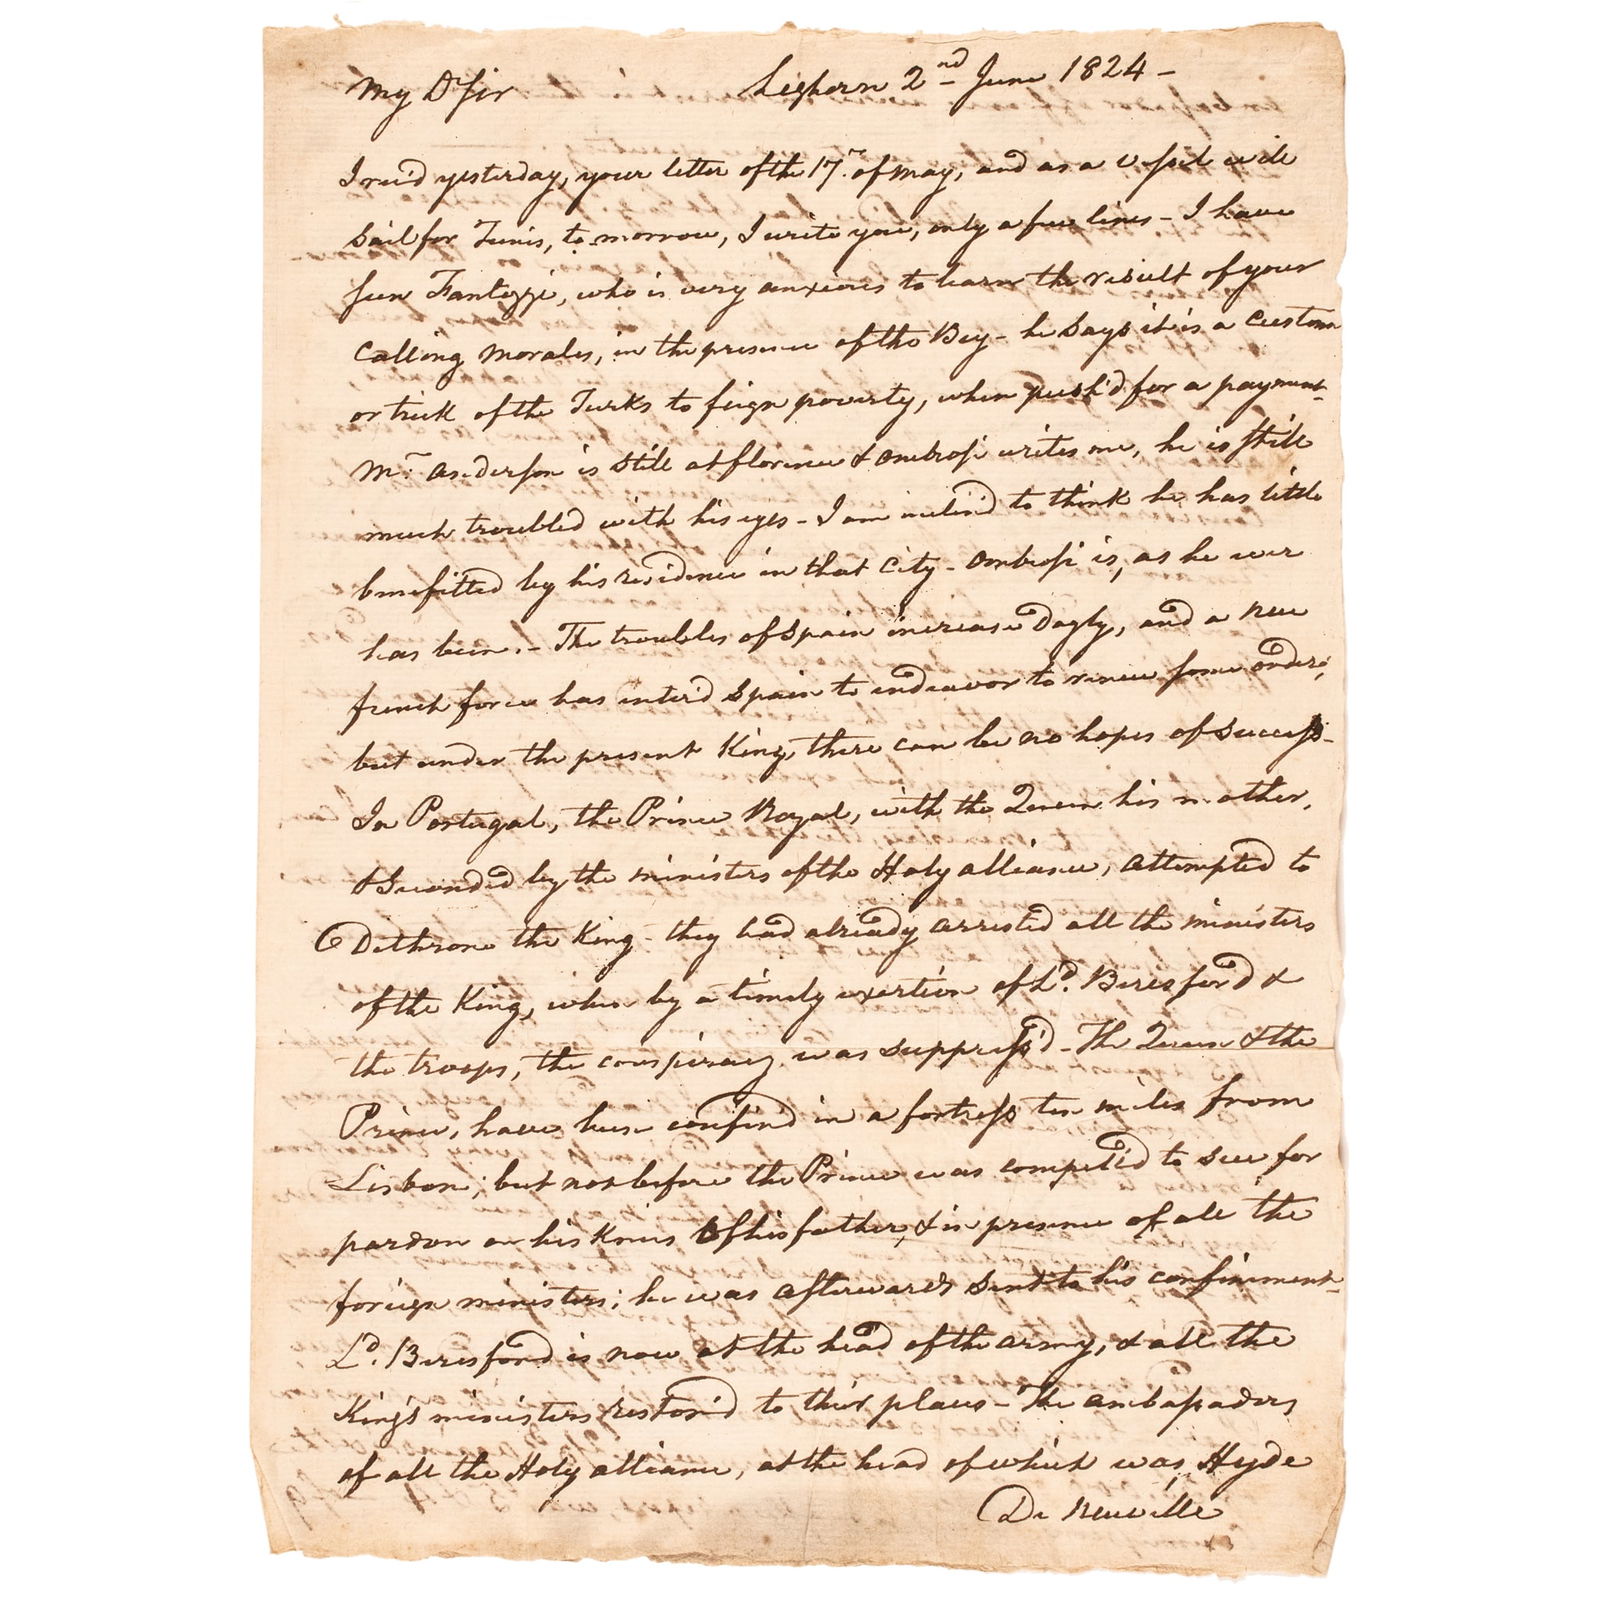 My Dr Sir Leghorn 2nd June 1824 -
I rec'd yesterday, your letter of the 17th of may, and as a vessel will
sail for Tunis, to morrow, I write you, only a few lines - I have
seen Fantozzi, who is very anxious to learn the result of your
calling Morales, in the presence of the Bey - he says it is a custom
or trick of the Turks to feign poverty, when push'd for a payment -
Mr Anderson is still at florence & Ombrosi writes me, he is still
much troubled with his eyes - I am inclin'd to think he has little
benefitted by his residence in that City - Ombrosi is, as he ever
has been. - The troubles of Spain increase Dayly, and a new
french force has enter'd Spain to endeavor to renew some order,
but under the present King, there can be no hopes of success -
In Portugal, the Prince Royal, with the Queen his mother,
& Seconded by the ministers of the Holy alliance, attempted to
Dethrone the King - they had already arrested all the ministers
of the King, when by a timely exertion of Ld. Beresford &
the troops, the conspiracy was suppress'd - The Queen & the
Prince, have been confin'd in a fortress ten miles from
Lisbon; but not before the Prince was compell'd to sue for
pardon on his Knees of his father, & in presence of all the
foreign ministers; he was afterwards sent to his confinement -
Ld. Beresford is now at the head of the army, & all the
King's ministers restor'd to their places - The ambassadors
of all the Holy alliance, at the head of which was, Hyde
De Neuville